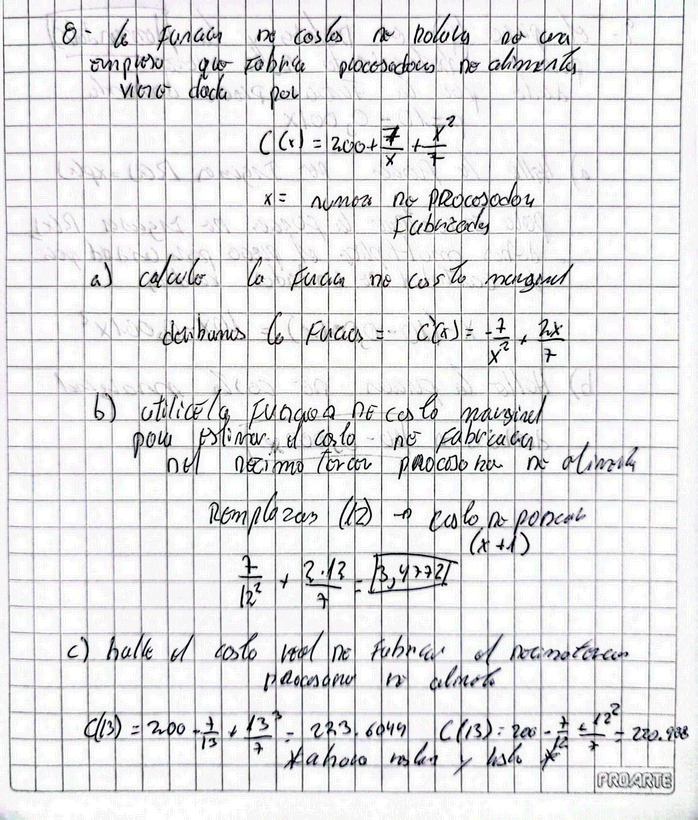 8- la Funcion de costos de
empresa que Fabrica procesadores de alimentos
viene dada por
C(x) = 200 + 7/x + x²/7
x = numero de procesadores
Fabricados
a) calcule la Funcion de costo marginal
derivamos la Funcion = C'(x) = -7/x² + 2x/7
b) utilice la Funcion de costo marginal
para estimar el costo de Fabricacion
del decimo tercer procesador de alimento
Remplazar (12) → costo de
(x+1)
7/12² + 2·12/7 = 3,4772
c) halle el costo real de Fabricar el decimotercer
procesador de alimento
C(13) = 200 - 7/13 + 13³/7 = 223.6044 C(13) = 200 - 7/12 + 12²/7 = 220.988
*ahora restar y listo *
PROARTE